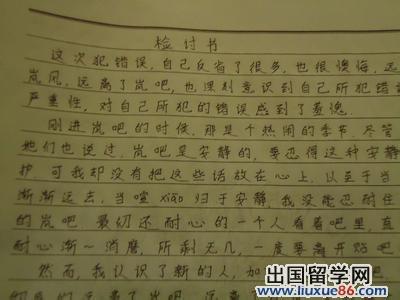 检付书
这次犯错误,自己反省了很多,也很懊悔,远
岚风,远离了岚吧,也深刻意识到自己所犯错误
严重性,对自己所犯的错误感到了羞愧
刚进岚吧的时候,那是个热闹的季节,尽管
她们也说过,岚吧是安静的,要忍得这种安静
护,可我却没有把这些话放在心上,以至于当
渐渐远去,当喧xiāo归于安静,我没能忍耐住
的岚吧,最初还耐心的一个人看着吧里,直
耐心渐一消磨,所剩无几,一度要离开贴吧
然而,我认识了新的人,加
的远离了岚吧,远离
出国留学网
www.liuxue86.com